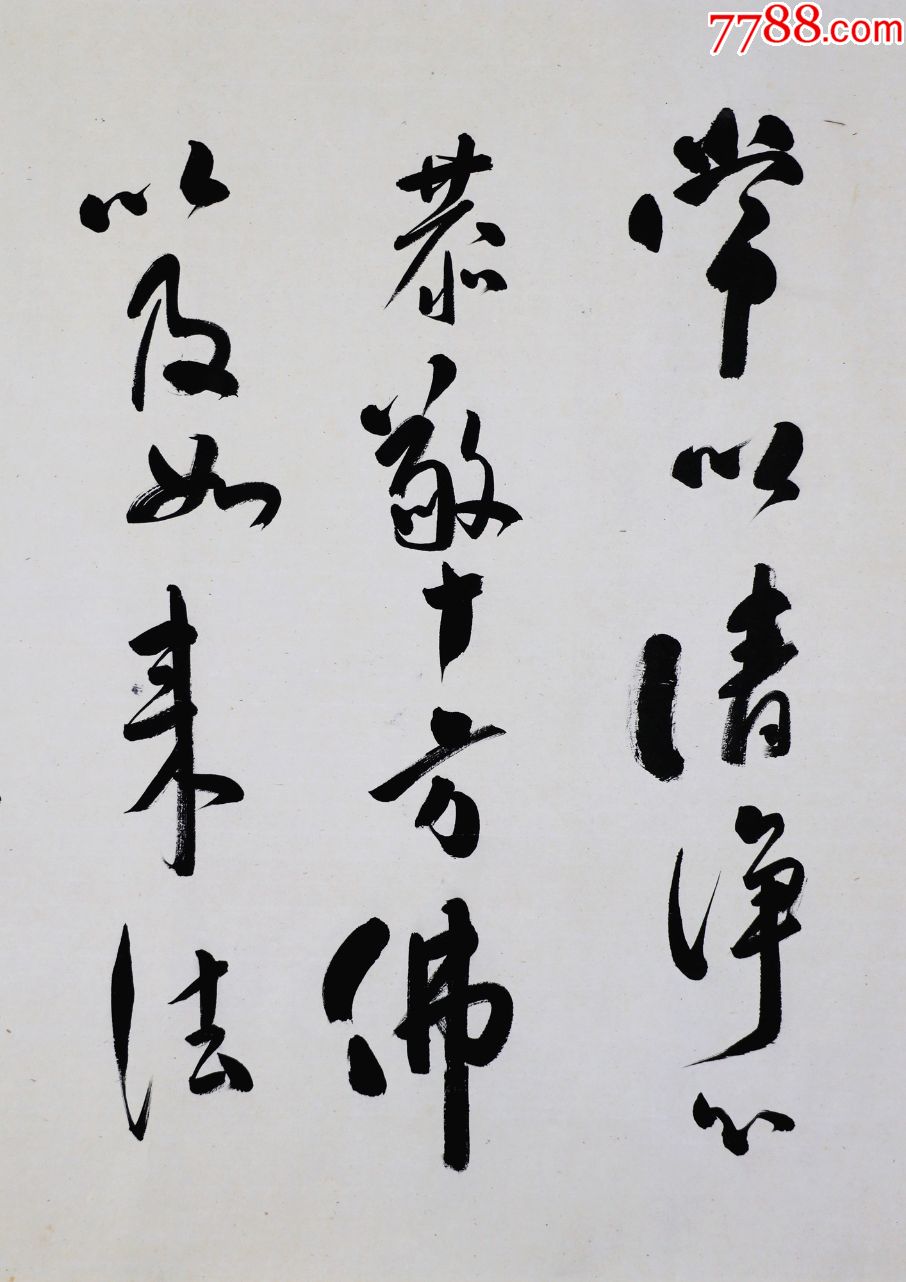 7788.com
常以清净心
恭敬十方佛
以及如来法